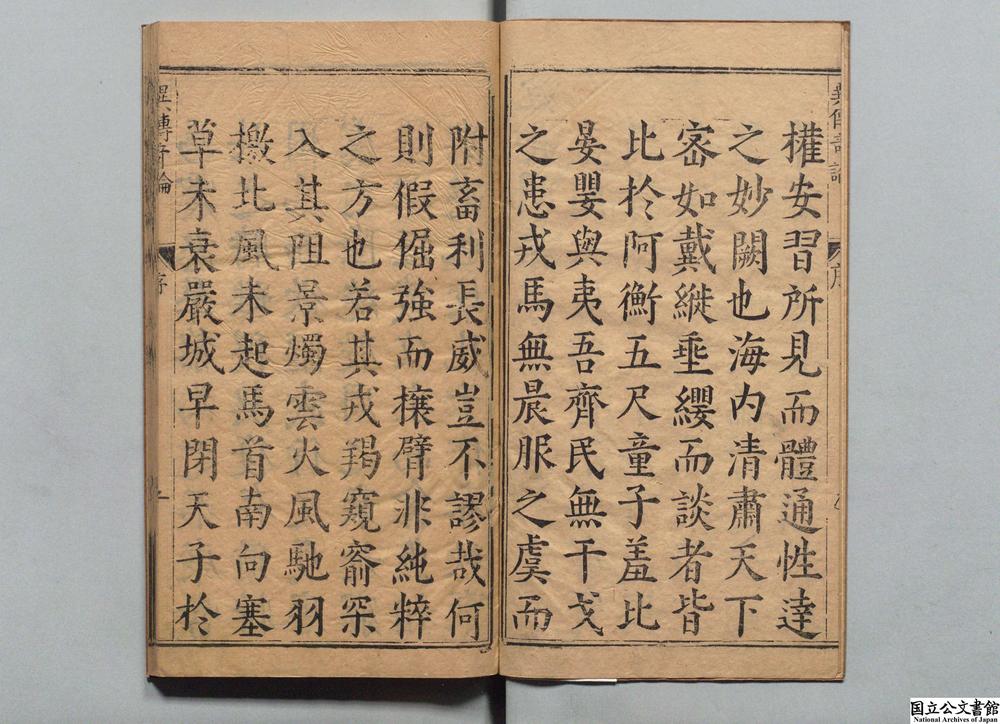 權安習所見而體通性達
之妙闕也海内清肅天下
宻如戴縰垂纓而談者皆
比於阿衡五尺童子羞比
晏嬰與夷吾齊民無干戈
之患戎馬無晨服之虞而
附畜利長威豈不謬哉何
則假倔強而攘臂非純粹
之方也若其戎羯窺窬罙
入其阻景燭雲火風馳羽
檄北風未起馬首南向塞
草未衰嚴城早閉天子於
傳 論 序 一
国立公文書館
National Archives of Japan